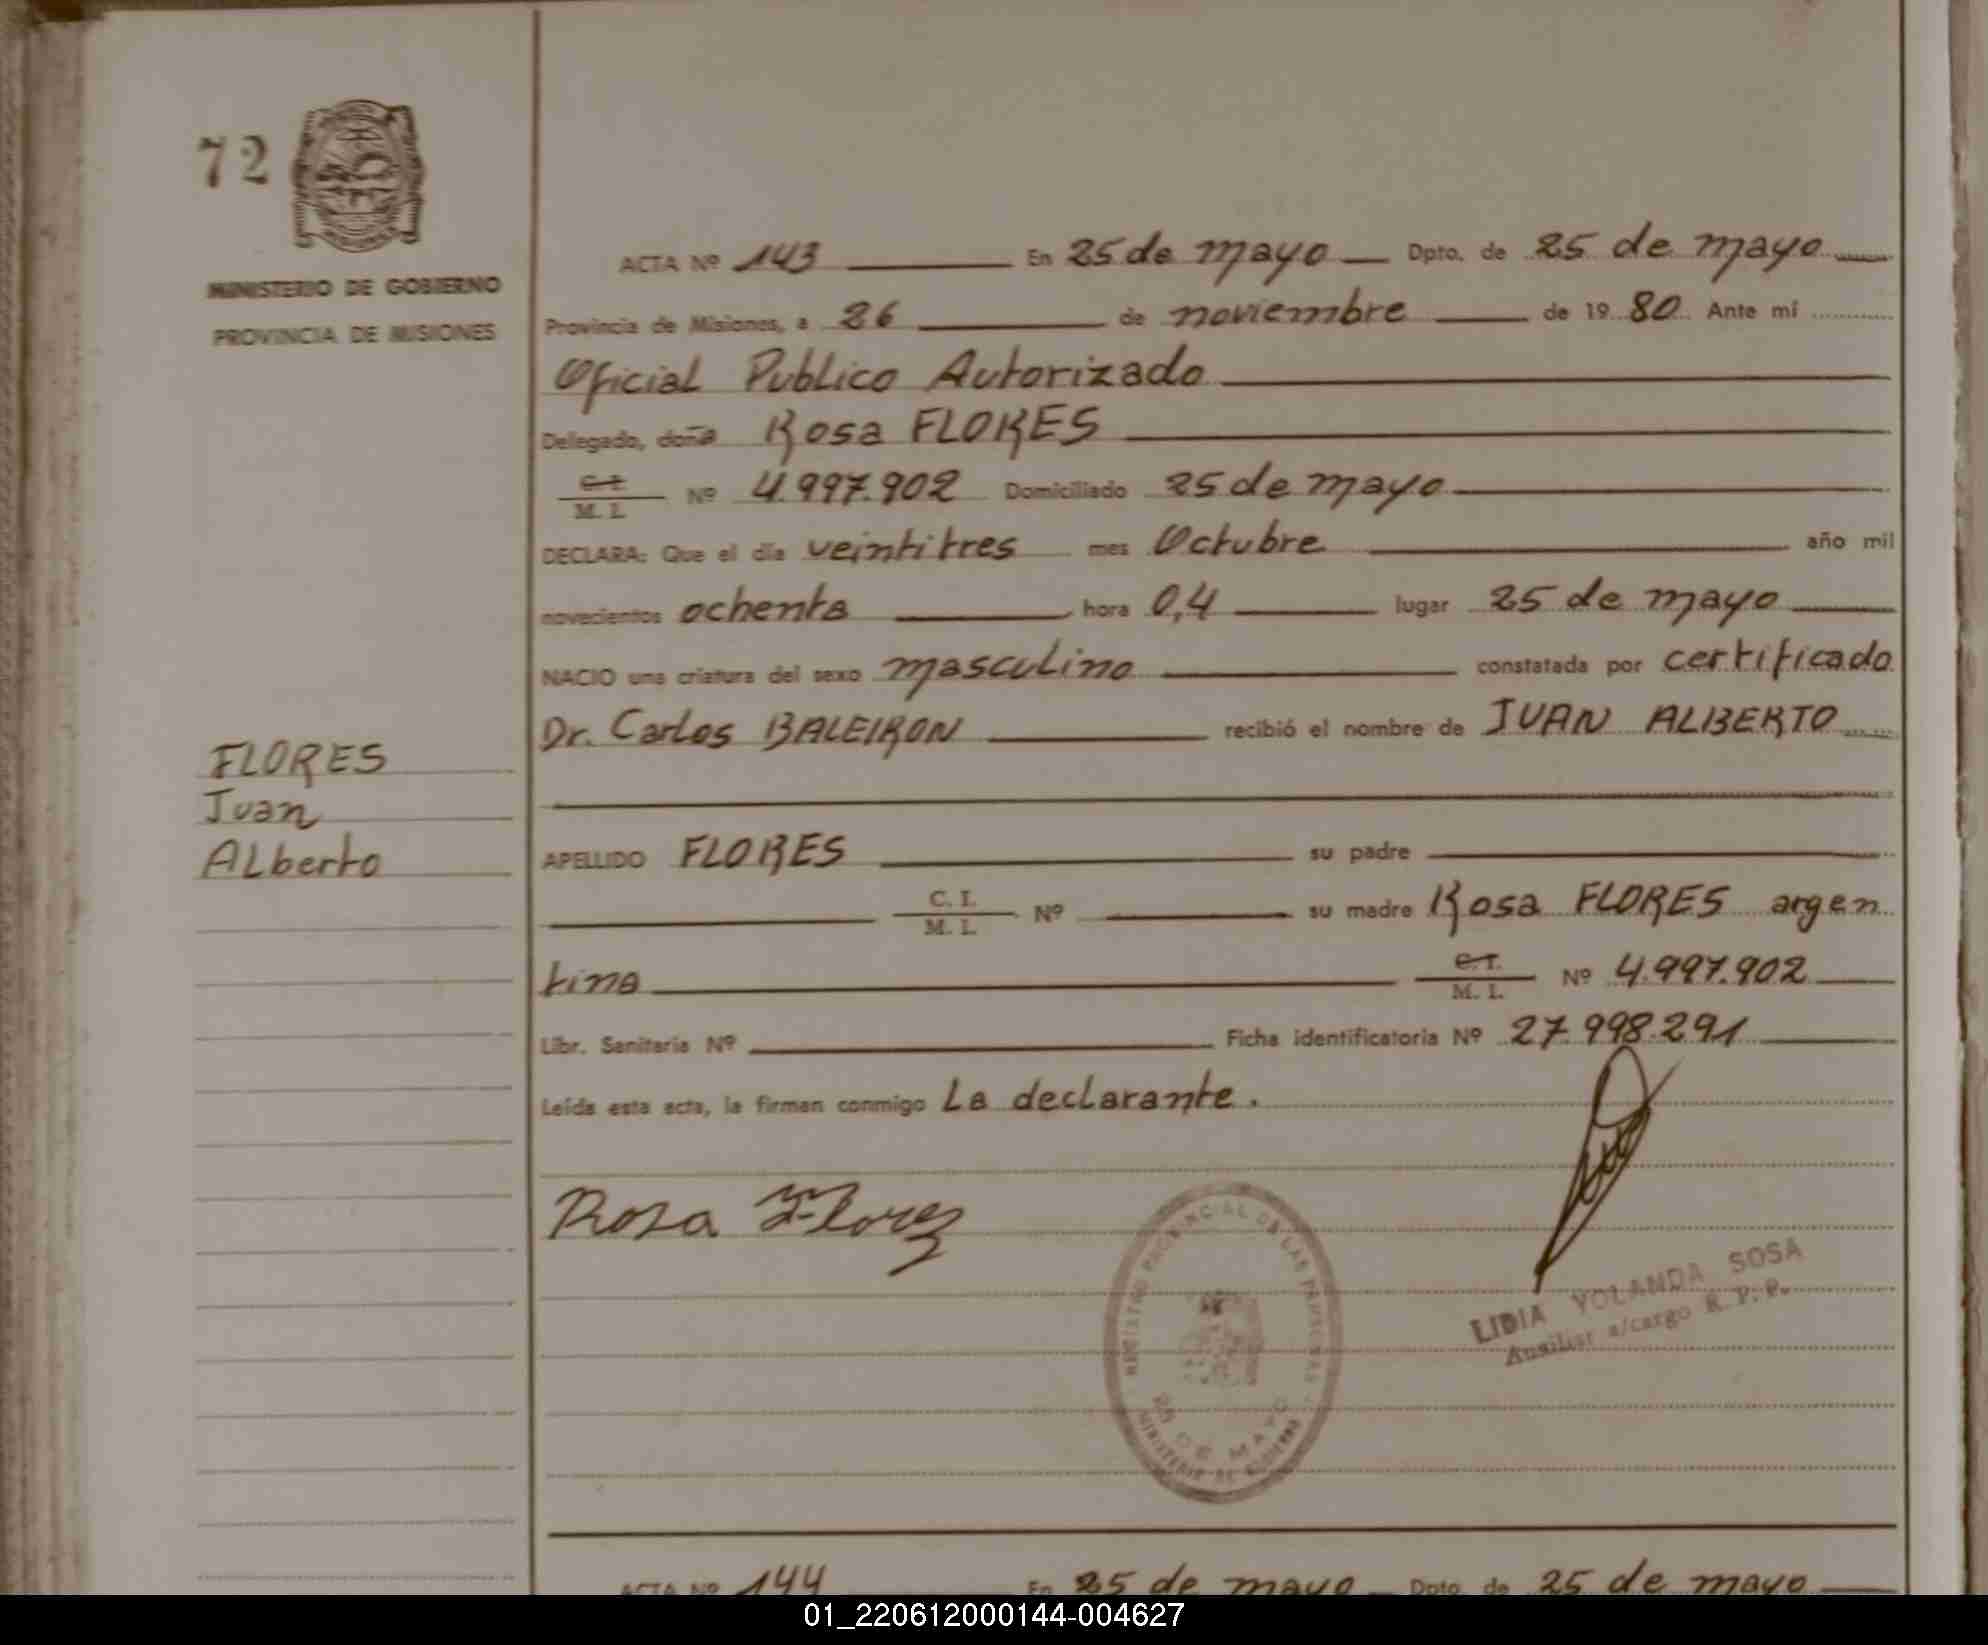 72
MINISTERIO DE GOBIERNO
PROVINCIA DE MISIONES
FLORES
Juan
Alberto
ACTA Nº 143 En 25 de mayo Dpto. de 25 de mayo
Provincia de Misiones, a 26 de noviembre de 1980 Ante mí
Oficial Publico Autorizado
Delegado, doña Rosa FLORES
C.I. M. I. Nº 4.997.902 Domiciliado 25 de mayo
DECLARA: Que el día veintitres mes Octubre año mil
novecientos ochenta hora 0,4 lugar 25 de mayo
NACIO una criatura del sexo masculino constatada por certificado
Dr. Carlos BALEIRON recibió el nombre de JUAN ALBERTO
APELLIDO FLORES su padre
C. I. M. I. Nº su madre Rosa FLORES argen
tina C.I. M. I. Nº 4.997.902
Libr. Sanitaria Nº Ficha identificatoria Nº 27.998.291
Leída esta acta, la firman conmigo La declarante.
Rosa Flores
REGISTRO PROVINCIAL DE LAS PERSONAS
25 DE MAYO
MINISTERIO DE GOBIERNO
LIDIA YOLANDA SOSA
Auxiliar a/cargo R. P. P.
ACTA Nº 144 En 25 de mayo Dpto de 25 de mayo
01_220612000144-004627